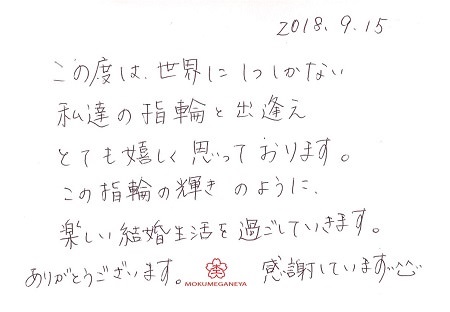 2018.9.15
この度は、世界に1つしかない
私達の指輪と出逢え
とても嬉しく思っております。
この指輪の輝きのように、
楽しい結婚生活を過ごしていきます。
ありがとうございます。 感謝しています^^
MOKUMEGANEYA